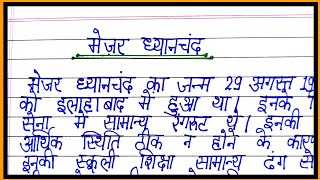 मेजर ध्यानचंद
मेजर ध्यानचंद का जन्म 29 अगस्त 19
को इलाहाबाद में हुआ था। इनके
सेना में सामान्य रंगरूट थे। इनकी
आर्थिक स्थिति ठीक न होने के कार
इनकी स्कूली शिक्षा सामान्य ढंग से